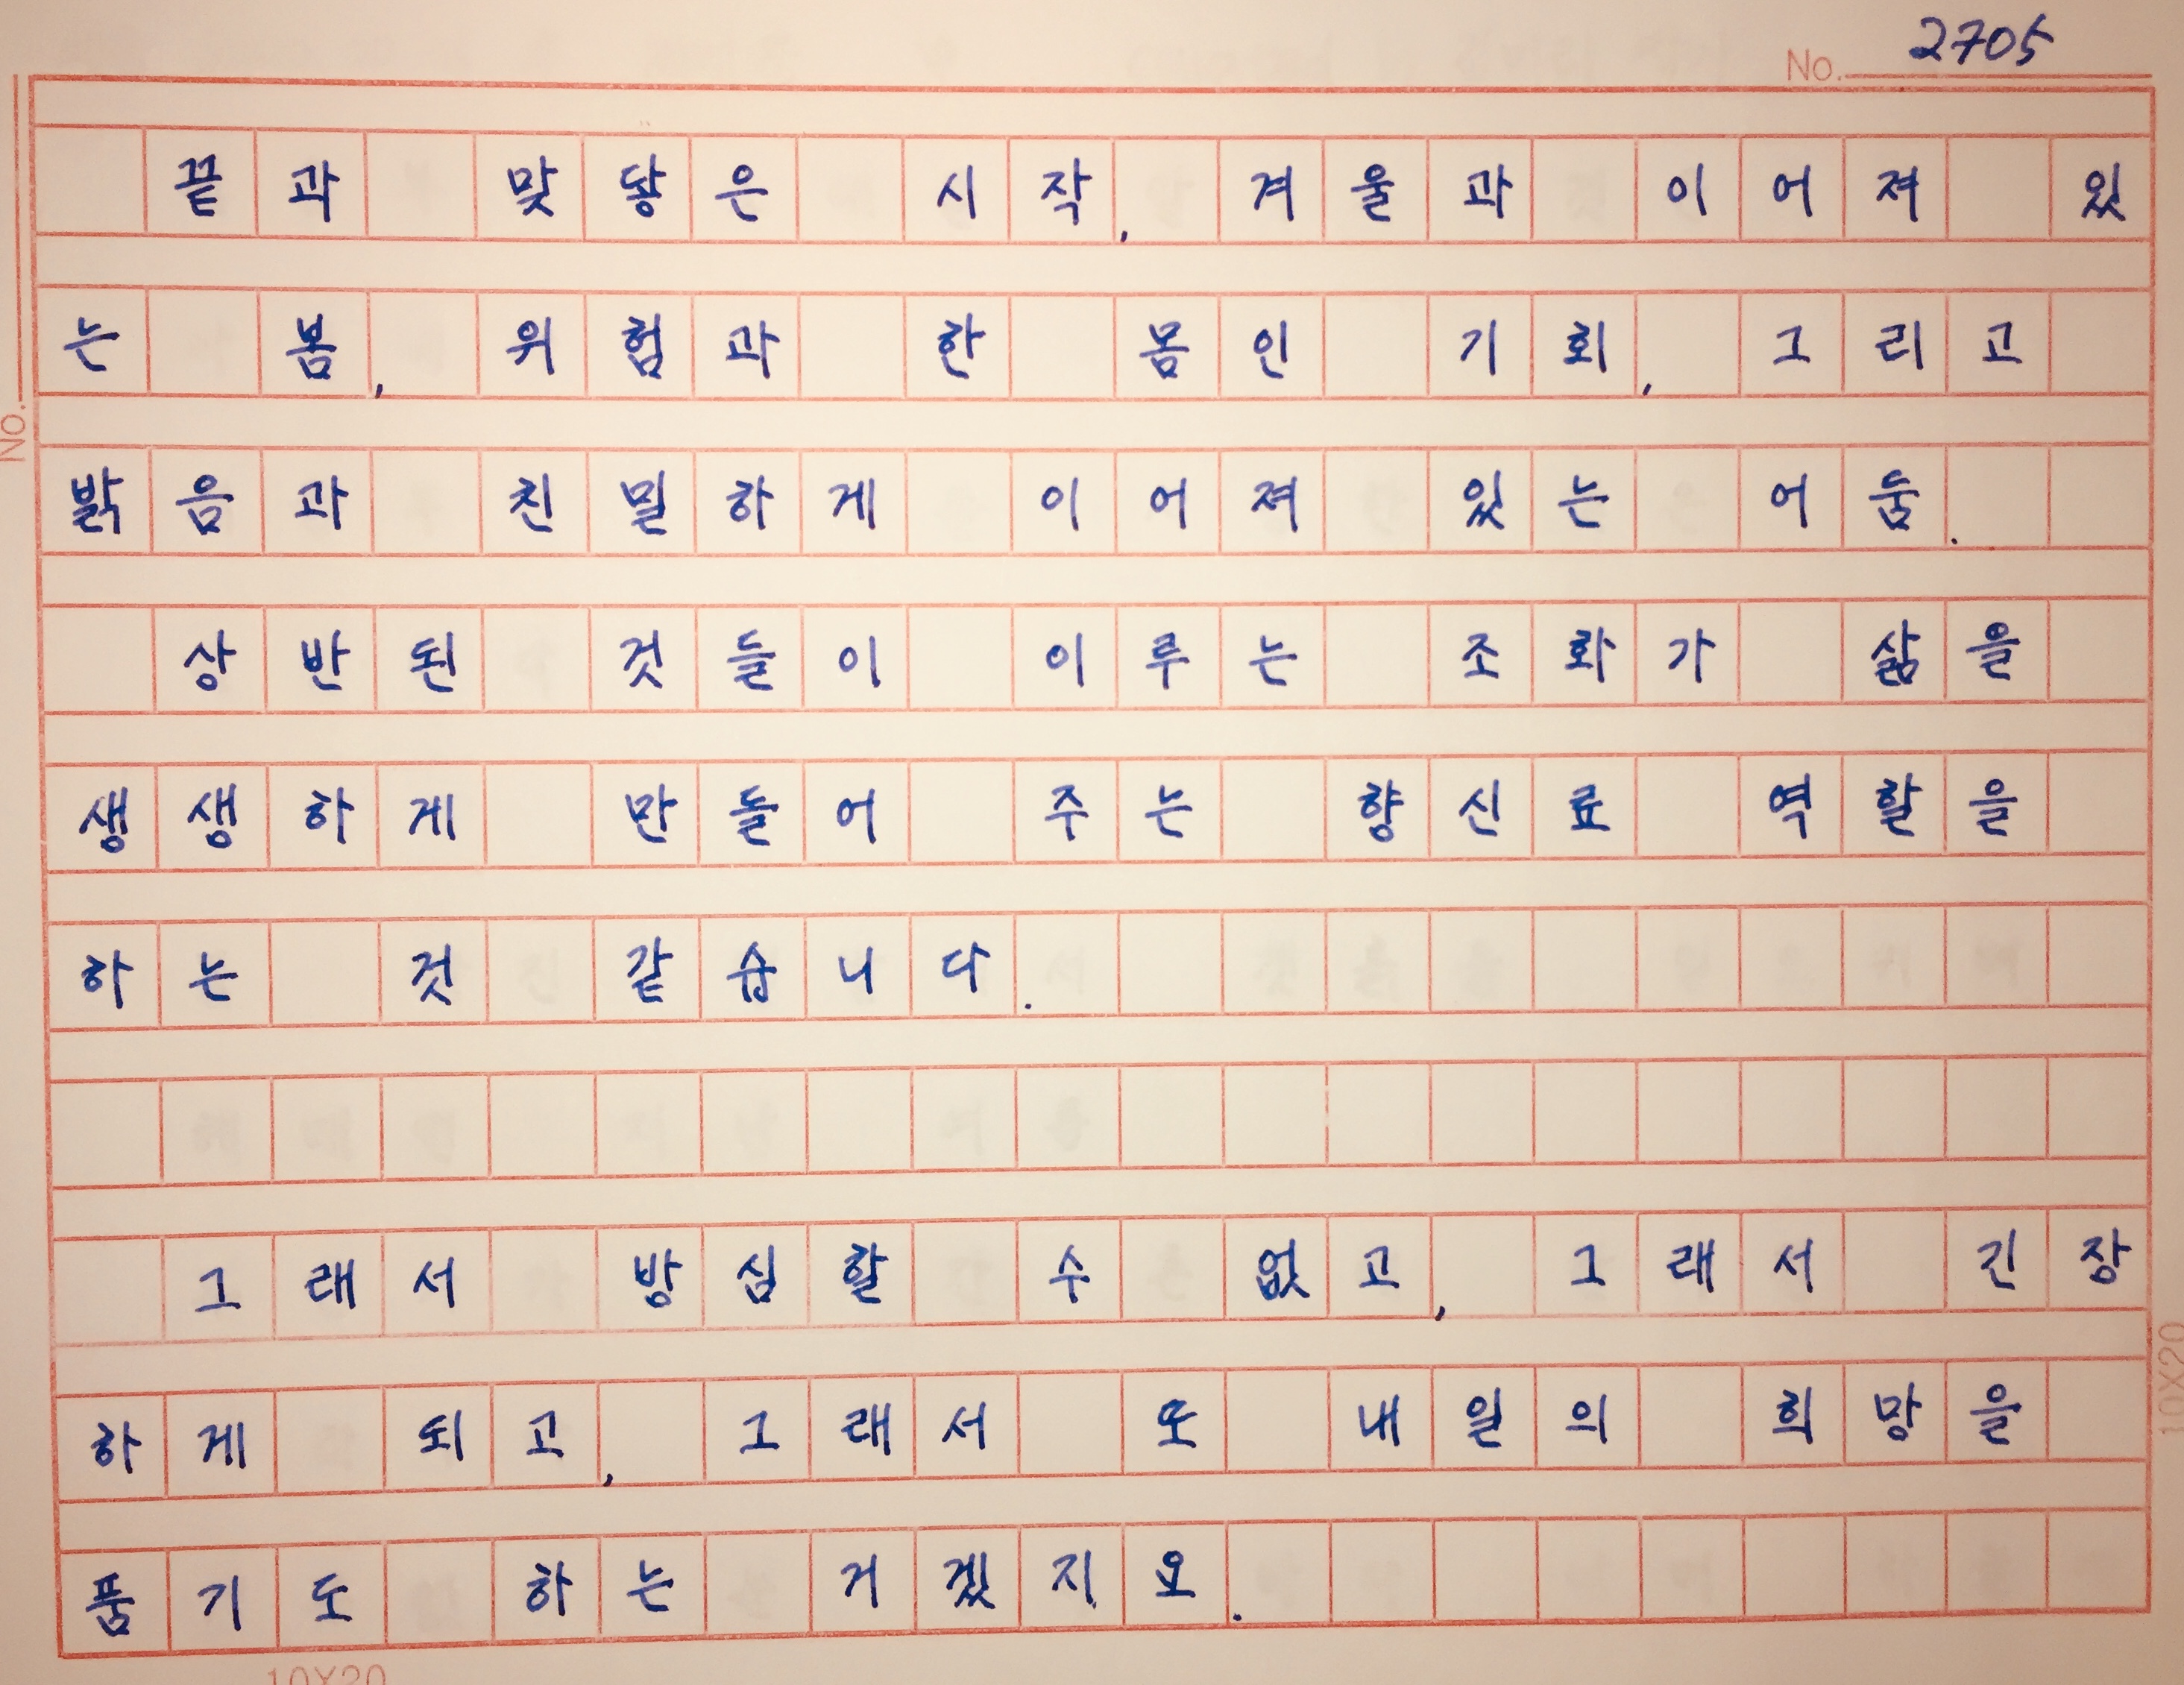 No. 2705
끝과 맞닿은 시작, 겨울과 이어져 있
는 봄, 위험과 한 몸인 기회, 그리고
밝음과 친밀하게 이어져 있는 어둠.
상반된 것들이 이루는 조화가 삶을
생생하게 만들어 주는 향신료 역할을
하는 것 같습니다.
그래서 방심할 수 없고, 그래서 긴장
하게 되고, 그래서 또 내일의 희망을
품기도 하는 거겠지요.
No.
10X20
10X20